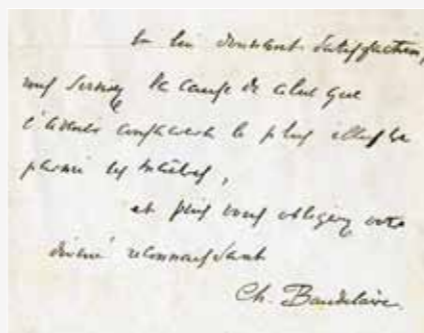 En lui donnant satisfaction,
vous servez la cause de celui que
l'avenir consacrera le plus illustre
parmi les maîtres,
et puis vous obligerez votre
dévoué reconnaissant
Ch. Baudelaire.